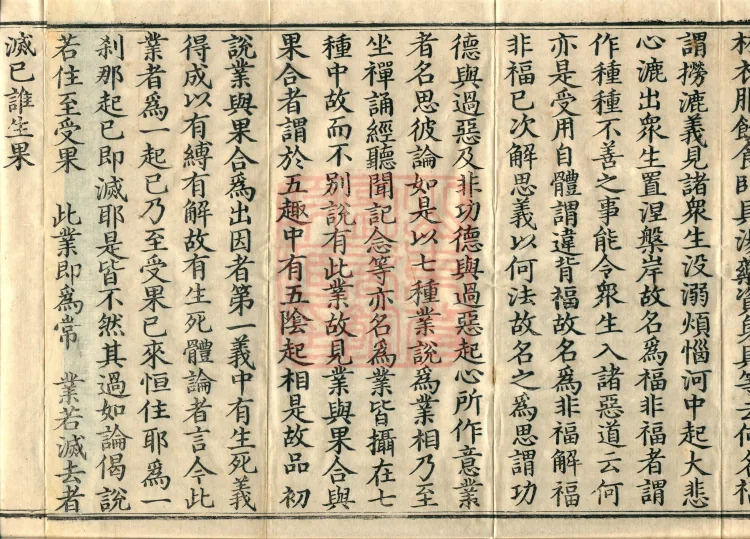 謂撈漉義見諸衆生没溺煩惱河中起大悲
心漉出衆生置涅槃岸故名爲福非福者謂
作種種不善之事能令衆生入諸惡道云何
亦是受用自體謂違背福故名爲非福解福
非福已次解思義以何法故名之爲思謂功
德與過惡及非功德與過惡起心所作意業
者名思彼論如是以七種業說爲業相乃至
坐禪誦經聽聞記念等亦名爲業皆攝在七
種中故而不別說有此業故見業與果合與
果合者謂於五趣中有五陰起相是故品初
說業與果合爲出因者第一義中有生死義
得成以有縛有解故有生死體論者言今此
業者爲一起已乃至受果已來恒住耶爲一
刹那起已即滅耶是皆不然其過如論偈說
若住至受果 此業即爲常 業若滅去者
滅已誰生果